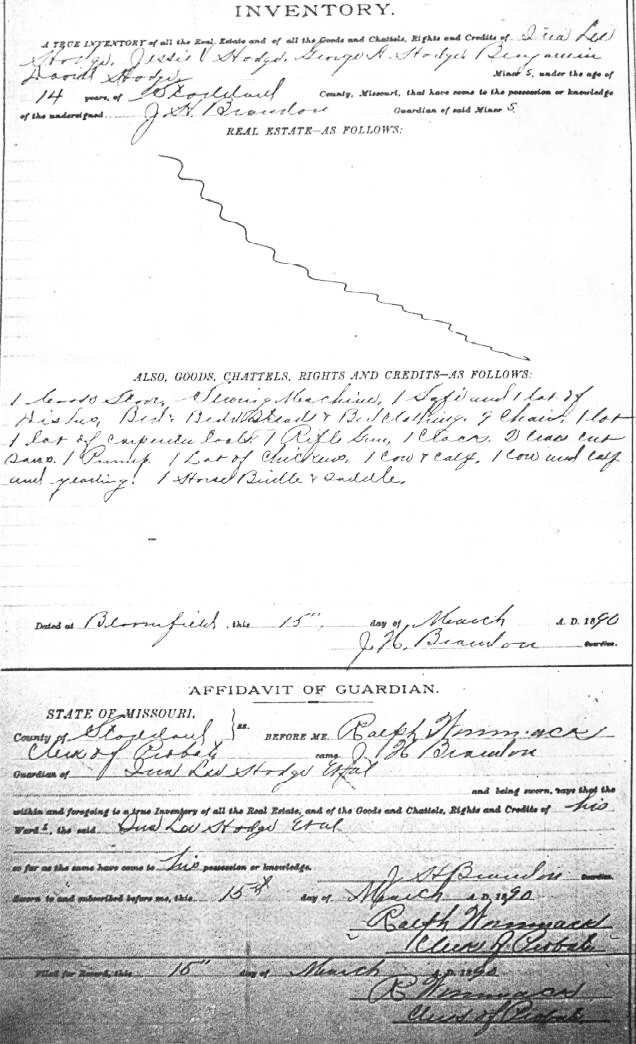 INVENTORY.
A TRUE INVENTORY of all the Real Estate and of all the Goods and Chattels, Rights and Credits of Ina Lee
Hodge, Jessie V Hodge, George A. Hodge, Benjamin
David Hodge Minor S, under the age of
14 years, of Stoddard County, Missouri, that have come to the possession or knowledge
of the undersigned J. H. Brandon Guardian of said Minor S
REAL ESTATE—AS FOLLOWS:
ALSO, GOODS, CHATTELS, RIGHTS AND CREDITS—AS FOLLOWS:
1 Stove, Sewing Machine, 1 Safe and 1 lot of
Dishes, Bed & Bedsteads & Bed Clothing. 9 Chairs, 1 lot
1 lot of carpenter tools 1 Rifle Gun, 1 Clock. 2 cross cut
saws. 1 Pump 1 Lot of Chickens. 1 Cow & Calf, 1 Cow and calf
and yearling. 1 Horse Bridle & saddle.
Dated at Bloomfield, this 15" day of March A. D. 1890
J. H. Brandon Guardian.
AFFIDAVIT OF GUARDIAN.
STATE OF MISSOURI,
County of Stoddard } ss. BEFORE ME, Ralph Wammack
Clerk of Probate came J. H Brandon
Guardian of Ina Lee Hodge Et al
and being sworn, says that the
within and foregoing is a true Inventory of all the Real Estate, and of the Goods and Chattels, Rights and Credits of his
Ward s, the said Ina Lee Hodge Et al
so far as the same have come to his possession or knowledge.
J H Brandon Guardian.
Sworn to and subscribed before me, this 15th day of March A. D. 1890
Ralph Wammack
Clerk of Probate
Filed for Record, this 15" day of March A. D. 1890
R Wammack
Clerk of Probate